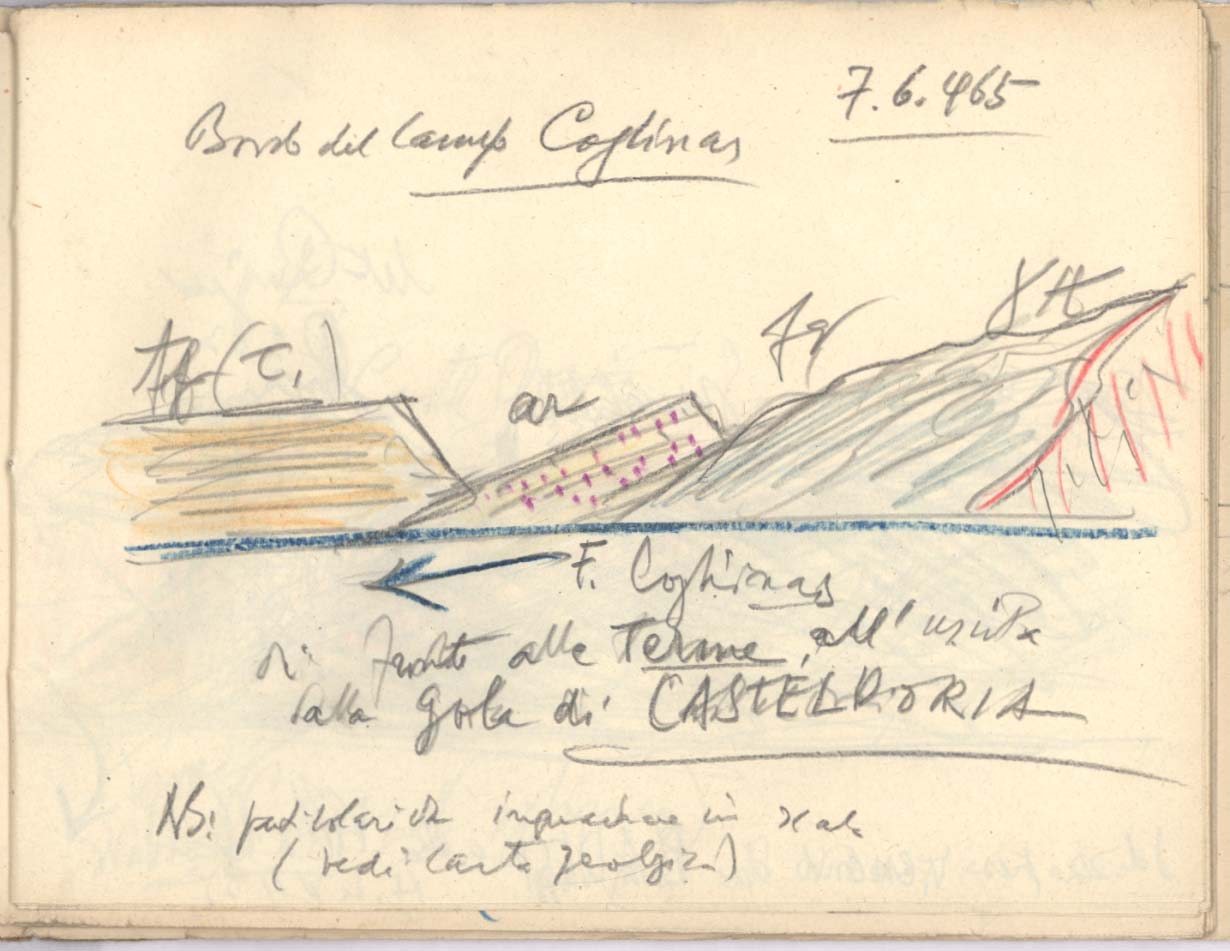 7.6.965
Bordo del Campo Coghinas
Tf (τ,)
ar
F. Coghinas
di fronte alle Terme, all'uscita
dalla gola di CASTELDORIA
NB: particolarità in scala
(vedi carta geologica)